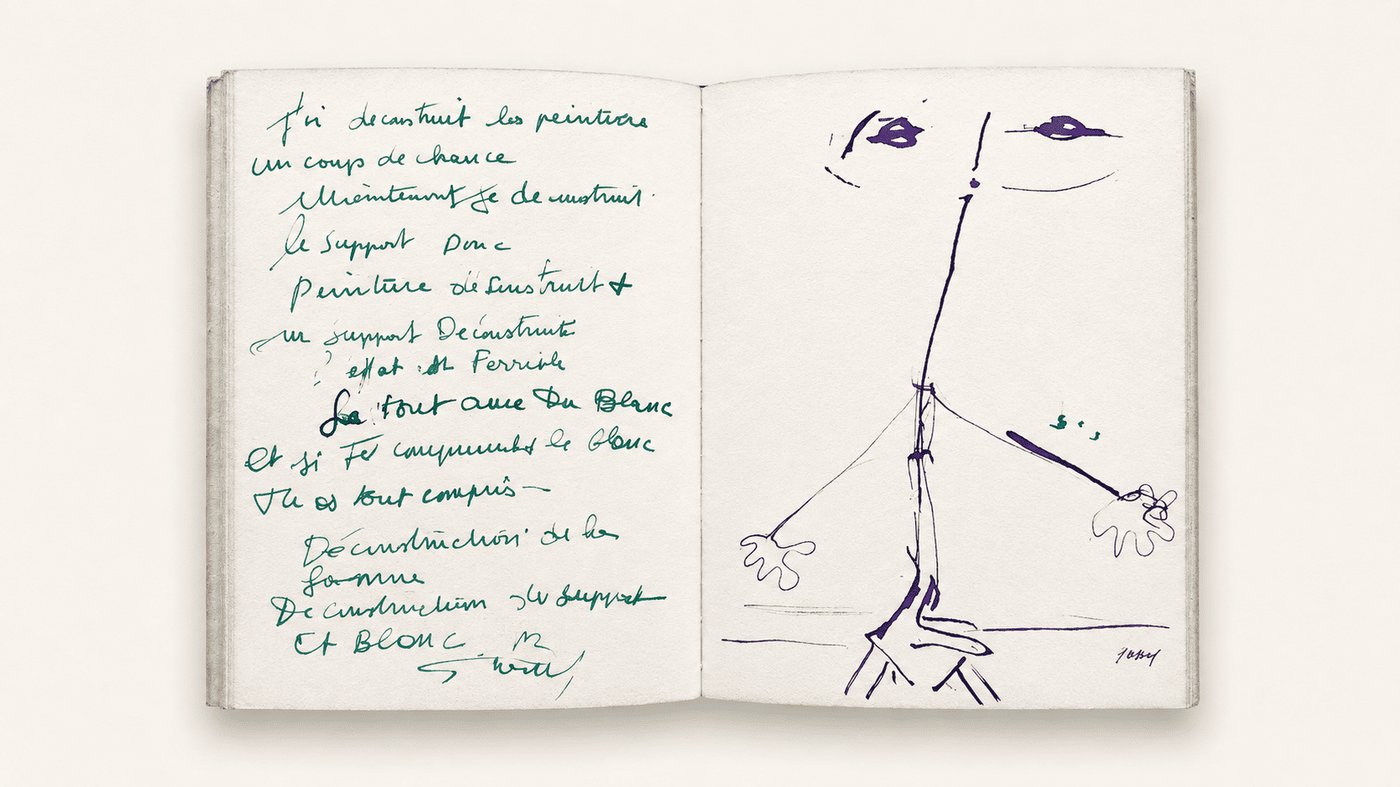 J'ai deconstruit les peintures
un coup de chance
Maintenant je deconstruit
le support Donc
Peinture désenstruit +
un support Deconstruite
est Ferrible
tout avec Du Blanc
Et si Tu comprends le blanc
Tu as tout compris —
Déconstruction de la
Deconstruction du support
Et BLANC